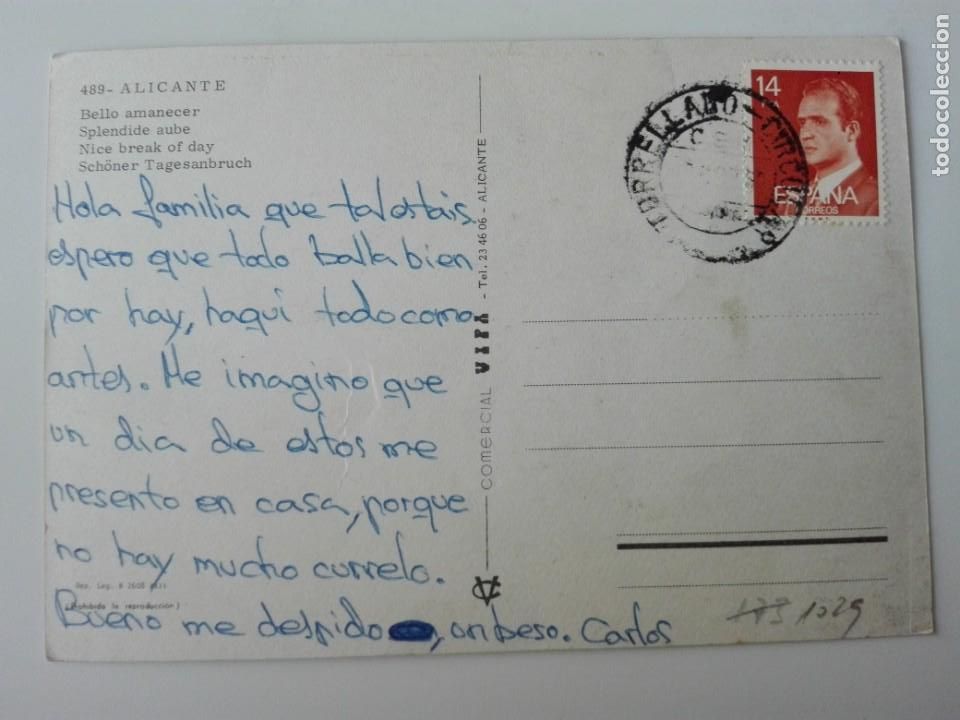 489- ALICANTE
Bello amanecer
Splendide aube
Nice break of day
Schöner Tagesanbruch
Hola familia que tal estais,
espero que todo balla bien
por hay, haqui todo como
antes. Me imagino que
un dia de estos me
presento en casa, porque
no hay mucho currelo.
Bueno me despido, un beso. Carlos
Dep. Leg. B 2608
(Prohibida la reproducción)
COMERCIAL VIPA - Tel. 23 46 06 - ALICANTE
14
ESPAÑA
CORREOS
TORRELLANO-
1029
todocoleccion